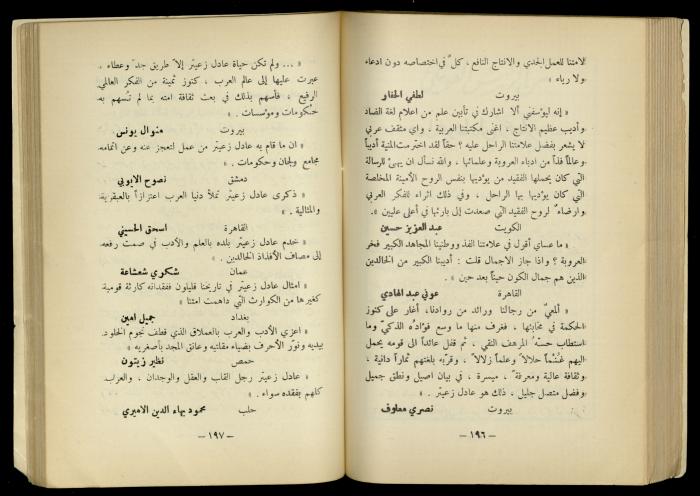 لامتنا للعمل الجدي والانتاج النافع ، كلٌ في اختصاصه دون ادعاء
ولا رياء »
بيروت لطفي الحفار
« إنه ليؤسفني ألا اشارك في تأبين علم من اعلام لغة الضاد
وأديب عظيم الانتاج ، اغنى مكتبتنا العربية ، واي مثقف عربي
لا يشعر بفضل علامتنا الراحل عليه ؟ حقاً لقد اخترمت المنية أديباً
وعالماً فذاً من ادباء العروبة وعلمائها ، والله نسأل ان يهيئ للرسالة
التي كان يحملها الفقيد من يؤديها بنفس الروح الأمينة المخلصة
التي كان يؤديها بها الراحل ، وفي ذلك اثراء للفكر العربي
وارضاء لروح الفقيد التي صعدت إلى بارئها في أعلى عليين . »
الكويت عبد العزيز حسين
« ما عساي أقول في علامتنا الفذ ووطنينا المجاهد الكبير فخر
العروبة ؟ واذا جاز الاجمال قلت : أديبنا الكبير من الخالدين
الذين هم جمال الكون حيناً بعد حين » .
القاهرة عوني عبد الهادي
« ألمعيّ من رجالنا ورائد من روادنا، أغار على كنوز
الحكمة في مخابئها ، فغرف منها ما وسع فؤاده الذكيّ وما
استطاب حسّه المرهف النقي ، ثم قفل عائداً الى قومه يحمل
اليهم غُنْماً حلالاً وعلماً زلالاً ، وقرّبه بلغتهم ثماراً دانية ،
وثقافة عالية ومعرفة ، ميسرة ، في بيان اصيل ونطق جميل
وفضل متصل جليل ، ذلك هو عادل زعيتر . »
بيروت نصري معلوف
— ١٩٦ —
« ... ولم تكن حياة عادل زعيتر إلا طريق جدّ وعطاء ،
عبرت عليها إلى عالم العرب ، كنوز ثمينة من الفكر العالمي
الرفيع ، فأسهم بذلك في بعث ثقافة امته بما لم تُسهم به
حكومات ومؤسسات . »
بيروت منوال يونس
« ان ما قام به عادل زعيتر من عمل لتعجز عنه وعن اتمامه
مجامع ولجان وحكومات . »
دمشق نصوح الايوبي
« ذكرى عادل زعيتر تملأ دنيا العرب اعتزازاً بالعبقرية
والمثالية . »
القاهرة اسحق الحسيني
« خدم عادل زعيتر بلده بالعلم والأدب في صمت رفعه
إلى مصاف الأفذاذ الخالدين . »
عمان شكري شعشاعة
« امثال عادل زعيتر في تاريخنا قليلون ففقدانه كارثة قومية
كغيرها من الكوارث التي داهمت امتنا »
بغداد جميل امين
« اعزي الأدب والعرب بالعملاق الذي قطف نجوم الخلود
بيديه ونوّر الأحرف بضياء مقلتيه وعانق المجد بأصغريه »
حمص نظير زيتون
« عادل زعيتر رجل القلب والعقل والوجدان ، والعرب
كلهم بفقده سواء . »
حلب محمود بهاء الدين الاميري
— ١٩٧ —